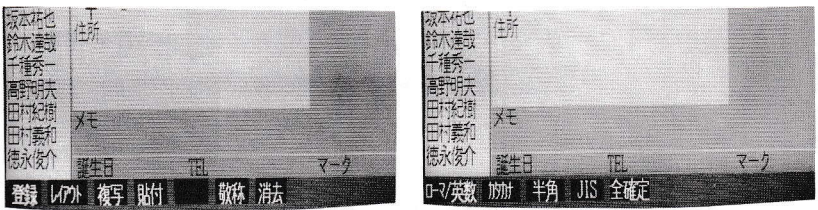 坂本祐也
鈴木達哉
千種秀一
高野明夫
田村紀樹
田村義和
徳永俊介
〒
住所
メモ
誕生日 TEL マーク
登録 ﾚｲｱｳﾄ 複写 貼付 敬称 消去
坂本祐也
鈴木達哉
千種秀一
高野明夫
田村紀樹
田村義和
徳永俊介
住所
メモ
誕生日 TEL マーク
ﾛｰﾏ/英数 ｶﾀｶﾅ 半角 JIS 全確定